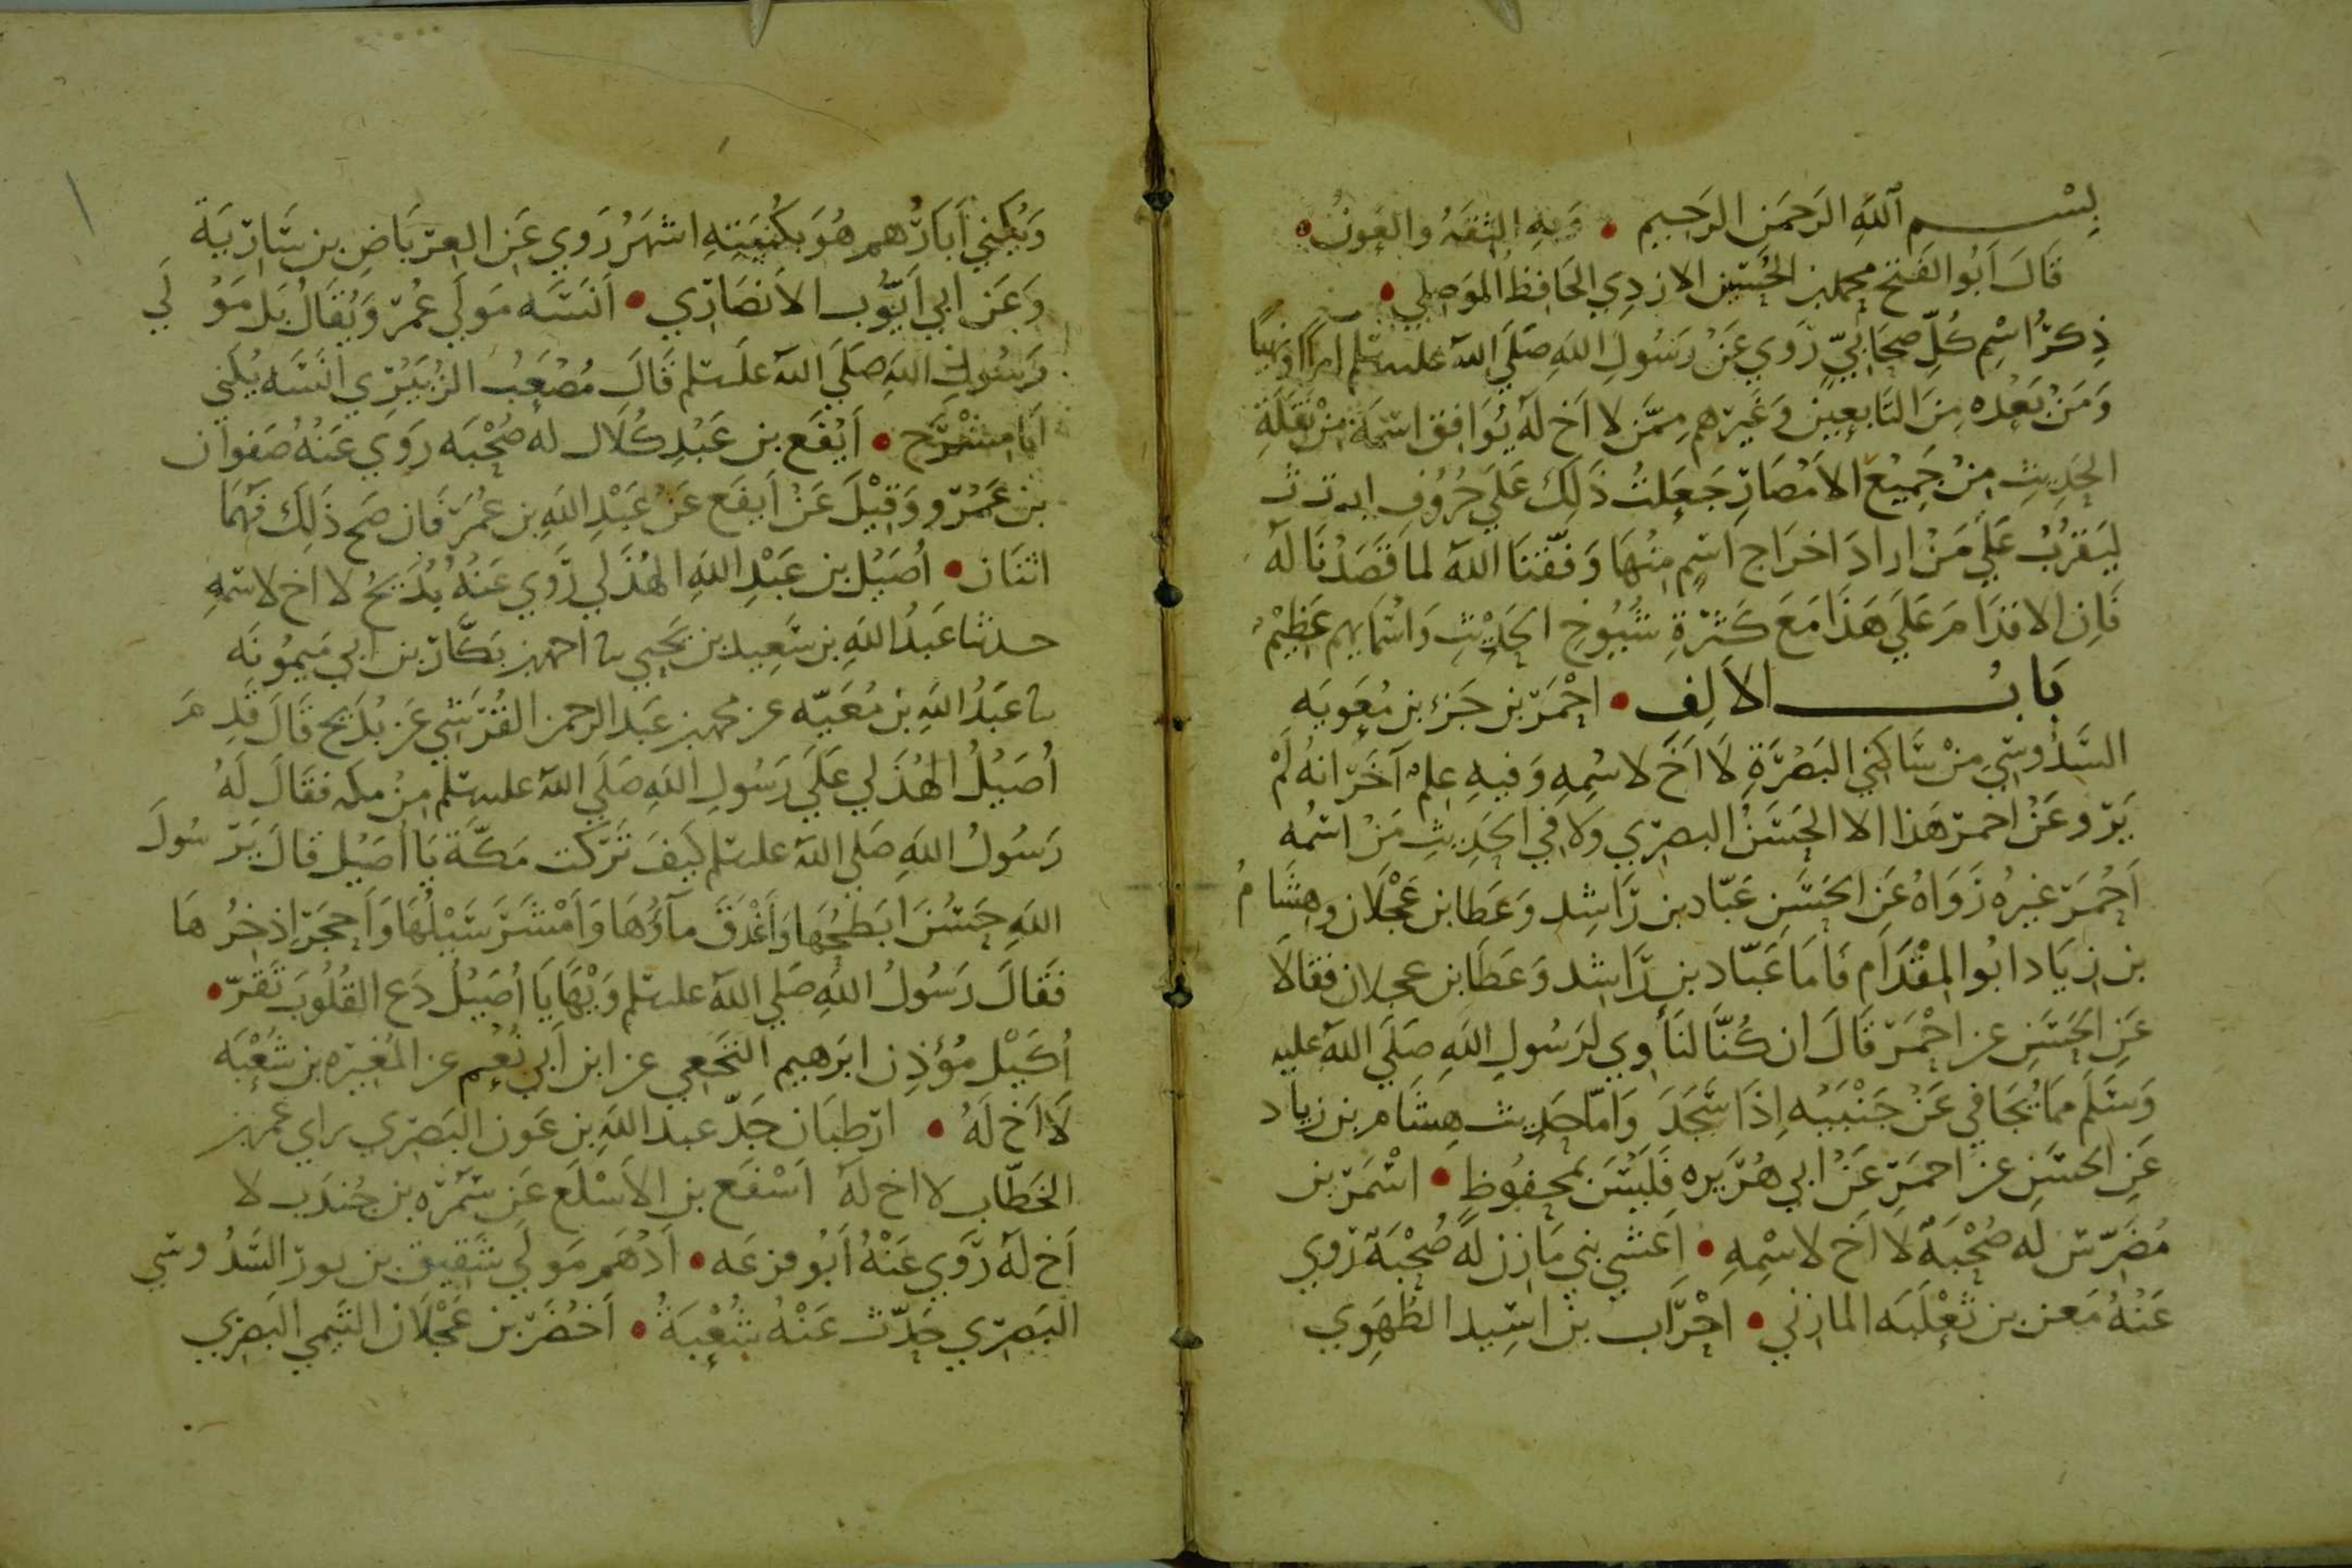 بسم الله الرحمن الرحيم • وبه الثقة والعون •
قال أبو الفتح محمد بن الحسين الازدي الحافظ الموصلي •
ذكر اسم كل صحابي روي عن رسول الله صلي الله عليه وسلم امرا ونهيا
ومن بعده من التابعين وغيرهم ممن لا اخ له يوافق اسمه من نقلة
الحديث من جميع الامصار جعلت ذلك علي حروف ا ب ت ث
ليقرب علي من اراد اخراج اسم منها وفقنا الله لما قصدنا له
فان الاقدام علي هذا مع كثرة شيوخ الحديث واسمايهم عظيم
باب الالف • احمر بن جزء بن معوية
السدوسي من ساكني البصرة لا اخ لاسمه وفيه علم آخر انه لم
يرو عن احمر هذا الا الحسن البصري ولا في الحديث من اسمه
أحمر غيره رواه عن الحسن عباد بن راشد وعطا بن عجلان وهشام
بن زياد ابو المقدام فاما عباد بن راشد وعطا بن عجلان فقالا
عن الحسن عن احمر قال ان كنا لنأوي لرسول الله صلي الله عليه
وسلم مما يجافي عن جنبيه إذا سجد واما حديث هشام بن زياد
عن الحسن عن احمر عن ابي هريره فليس بمحفوظ • اسمر بن
مضرس له صحبة لا اخ لاسمه • اعشي بني مازن له صحبة روي
عنه معن بن ثعلبه المازني • احزاب بن اسيد الظهوي
ويكني أبا رهم هو بكنيته اشهر روي عن العرباض بن سارية
وعن ابي أيوب الانصاري • أنسه مولي عمر ويقال بل مولي
رسول الله صلي الله عليه وسلم قال مصعب الزبيري انسه يكني
ابا مسرح • أيفع بن عبد كلال له صحبه روي عنه صفوان
بن عمرو وقيل عن أيفع عن عبد الله بن عمر فان صح ذلك فهما
اثنان • أصيل بن عبد الله الهذلي روي عنه بديح لا اخ لاسمه
حدثنا عبد الله بن سعيد بن يحيي نا احمد بن بكار بن ابي ميمونه
نا عبد الله بن معيه عن محمد بن عبد الرحمن القرشي عن بديح قال قدم
أصيل الهذلي علي رسول الله صلي الله عليه وسلم من مكه فقال له
رسول الله صلي الله عليه وسلم كيف تركت مكة يا أصيل قال يرسول
الله حسن ابطحها وأغدق مآؤها وأمشر سيلها وأحجر إذخرها
فقال رسول الله صلي الله عليه وسلم ويها يا أصيل دع القلوب تقر •
أكيل مؤذن ابرهيم النخعي عن ابن أبي نعم عن المغيره بن شعبه
لا أخ له • ارطبان جد عبد الله بن عون البصري راي عمر بن
الخطاب لا اخ له اسفع بن الاسلع عن سمره بن جندب لا
أخ له روي عنه أبو قزعه • أدهم مولي شقيق بن ثور السدوسي
البصري حدث عنه شعبة • أخضر بن عجلان التيمي البصري